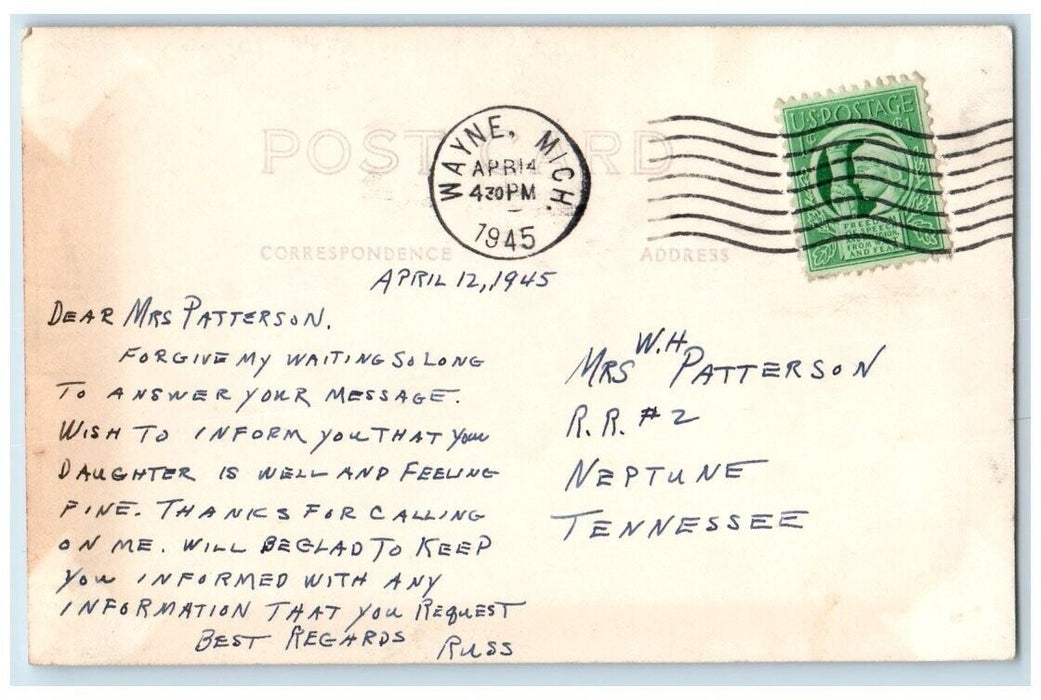 POST CARD
WAYNE, MICH.
APR 14
430 PM
1945
U.S. POSTAGE
1¢
FREEDOM
OF SPEECH
AND RELIGION,
FROM WANT
AND FEAR
CORRESPONDENCE
ADDRESS
APRIL 12, 1945
DEAR MRS PATTERSON.
FORGIVE MY WAITING SO LONG
TO ANSWER YOUR MESSAGE.
WISH TO INFORM YOU THAT YOUR
DAUGHTER IS WELL AND FEELING
FINE. THANKS FOR CALLING
ON ME. WILL BE GLAD TO KEEP
YOU INFORMED WITH ANY
INFORMATION THAT YOU REQUEST
BEST REGARDS
RUSS
MRS W.H. PATTERSON
R.R. #2
NEPTUNE
TENNESSEE